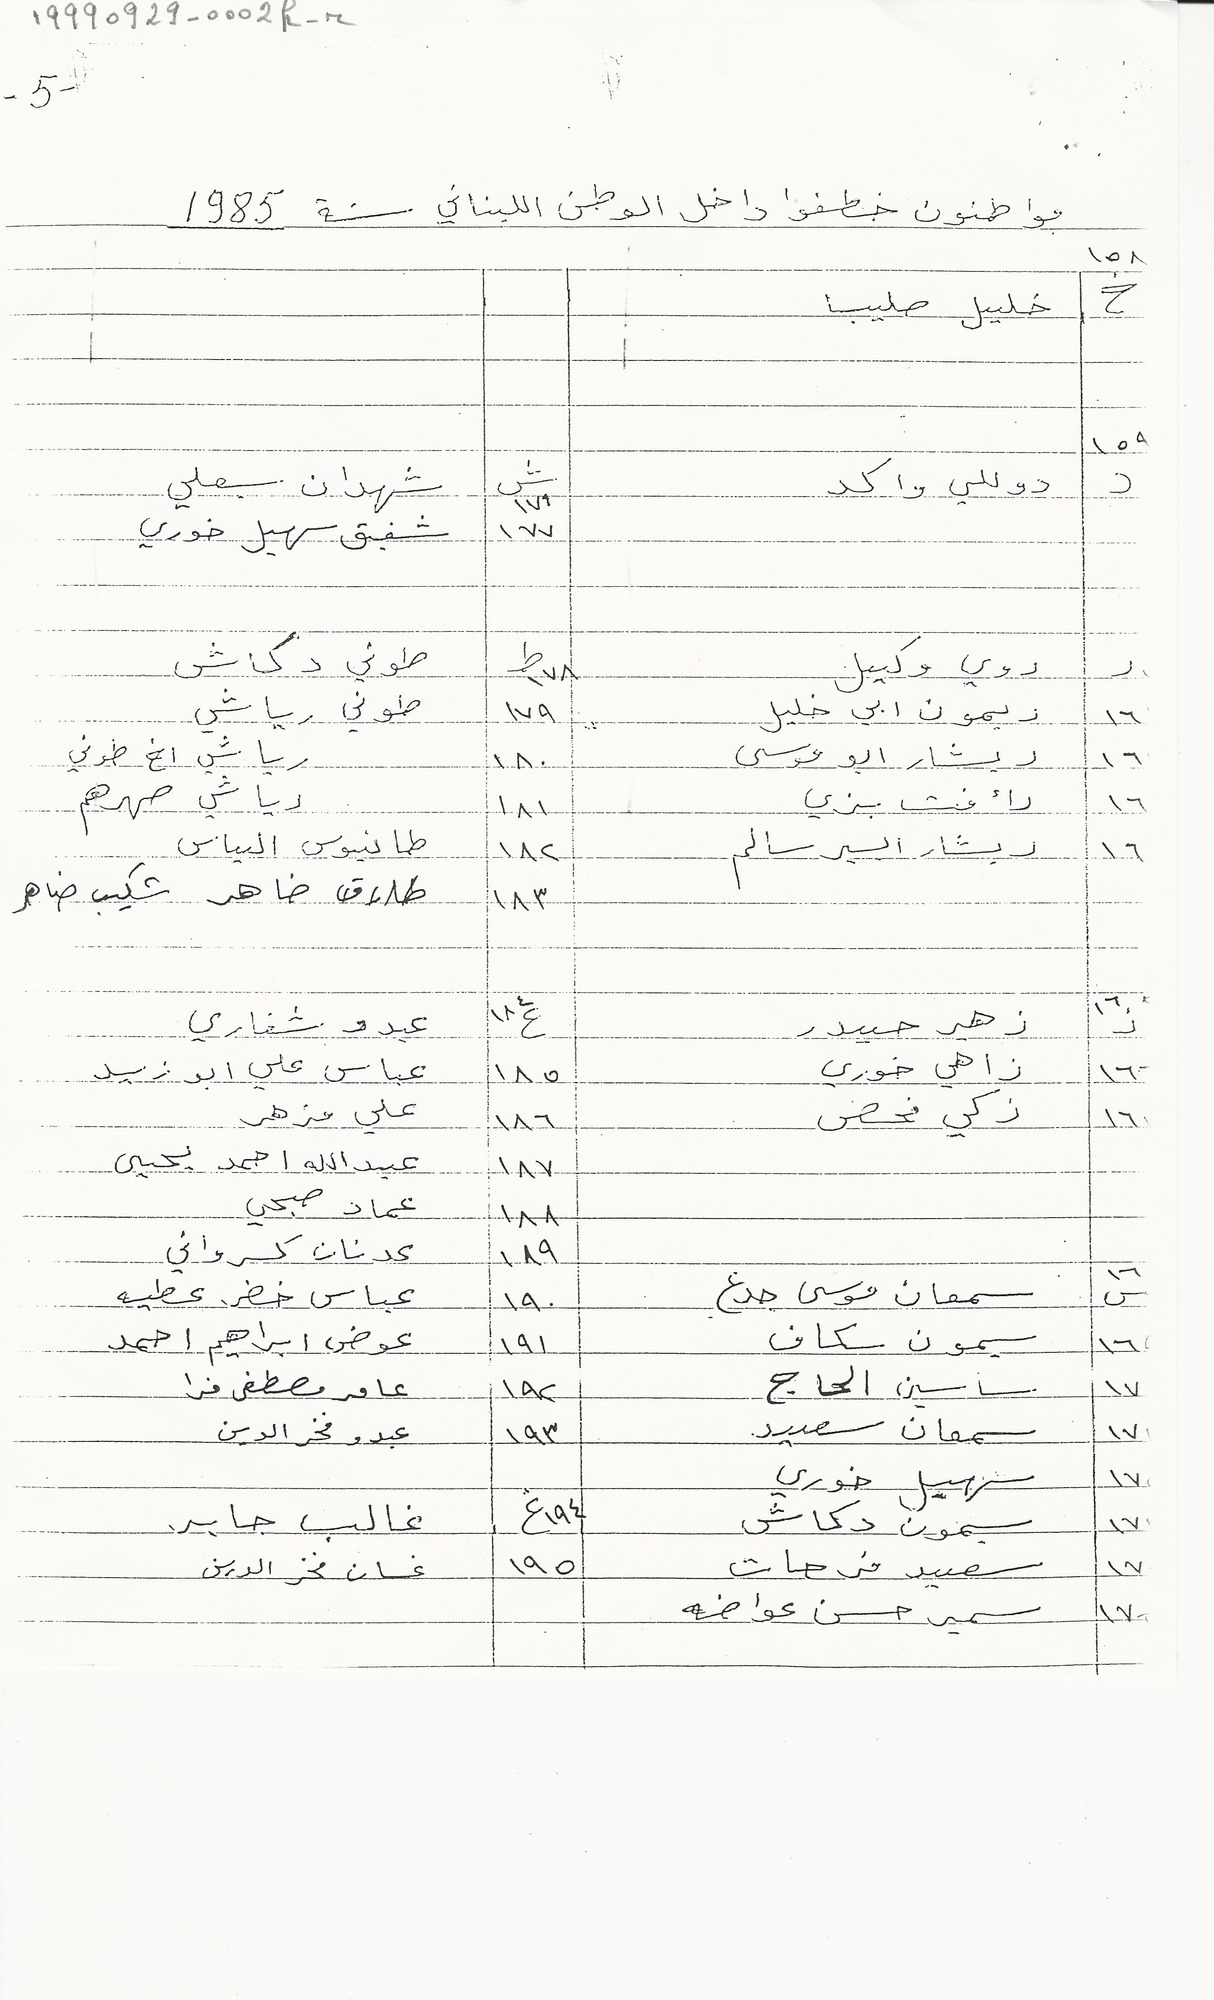 19990929-0002
-5-
مواطنون خطفوا داخل الوطن اللبناني سنة 1985
١٥٨
خ خليل صليبا
١٥٩
د دوللي واكد
ر روي وكييل
١٦ ريمون ابي خليل
١٦ ريشار ابو موسى
١٦ رأفت بزي
١٦ ريشار السير سالم
١٦
ز زهير حيدر
١٦ زاهي خوري
١٦ زكي
١٦
س سمعان موسى جدع
١٦ سيمون سكاف
١٧ ساسين الحاج
١٧ سمعان سعيد
١٧ سهيل خوري
١٧ سيمون دكاش
١٧ سعيد فرحات
١٧ سمير حسن عواضه
ش شهدان بعلي
١٧٦
١٧٧ شفيق سهيل خوري
ط ١٧٨ طوني دكاش
١٧٩ طوني رياشي
١٨٠ رياشي اخ طوني
١٨١ رياشي صهرهم
١٨٢ طانيوس الياس
١٨٣ طلاق ضاهر شكيب ضاهر
ع ١٨٤ عبدو شفاري
١٨٥ عباس علي ابو زيد
١٨٦ علي مزهر
١٨٧ عبدالله احمد يحيى
١٨٨ عماد صبحي
١٨٩ عدنان كسرواني
١٩٠ عباس خضر عطيه
١٩١ عوض ابراهيم احمد
١٩٢ عامر مصطفى
١٩٣ عبدو فخر الدين
غ ١٩٤ غالب جابر
١٩٥ غسان فخر الدين